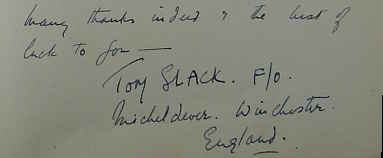 Many thanks indeed & the best of
luck to you —
Tom SLACK. F/O.
Micheldever. Winchester.
England.